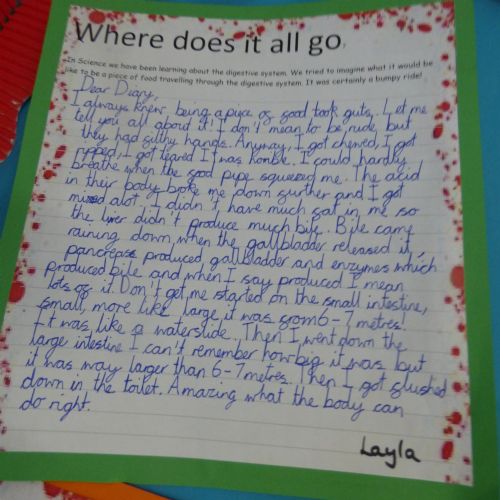 Where does it all go.
In Science we have been learning about the digestive system. We tried to imagine what it would be
like to be a piece of food travelling through the digestive system. It was certainly a bumpy ride!
Dear Diary,
I always knew being a piece of food took guts. Let me
tell you all about it! I don't mean to be rude, but
they had filthy hands. Anyway, I got chewed, I got
ripped, I got teared It was horrible. I could hardly
breathe when the food pipe squeezed me. The acid
in their body broke me down further and I got
mixed alot. I didn't have much fat in me so
the liver didn't produce much bile. Bile came
raining down when the gallbladder released it,
pancrease produced gallbladder and enzymes which
produced bile and when I say produced I mean
lots of it. Don't get me started on the small intestine,
small, more like large it was from 6-7 metres!
It was like a waterslide. Then I went down the
large intestine I can't remember how big it was but
it was way larger than 6-7 metres. Then I got flushed
down in the toilet. Amazing what the body can
do right.
Layla